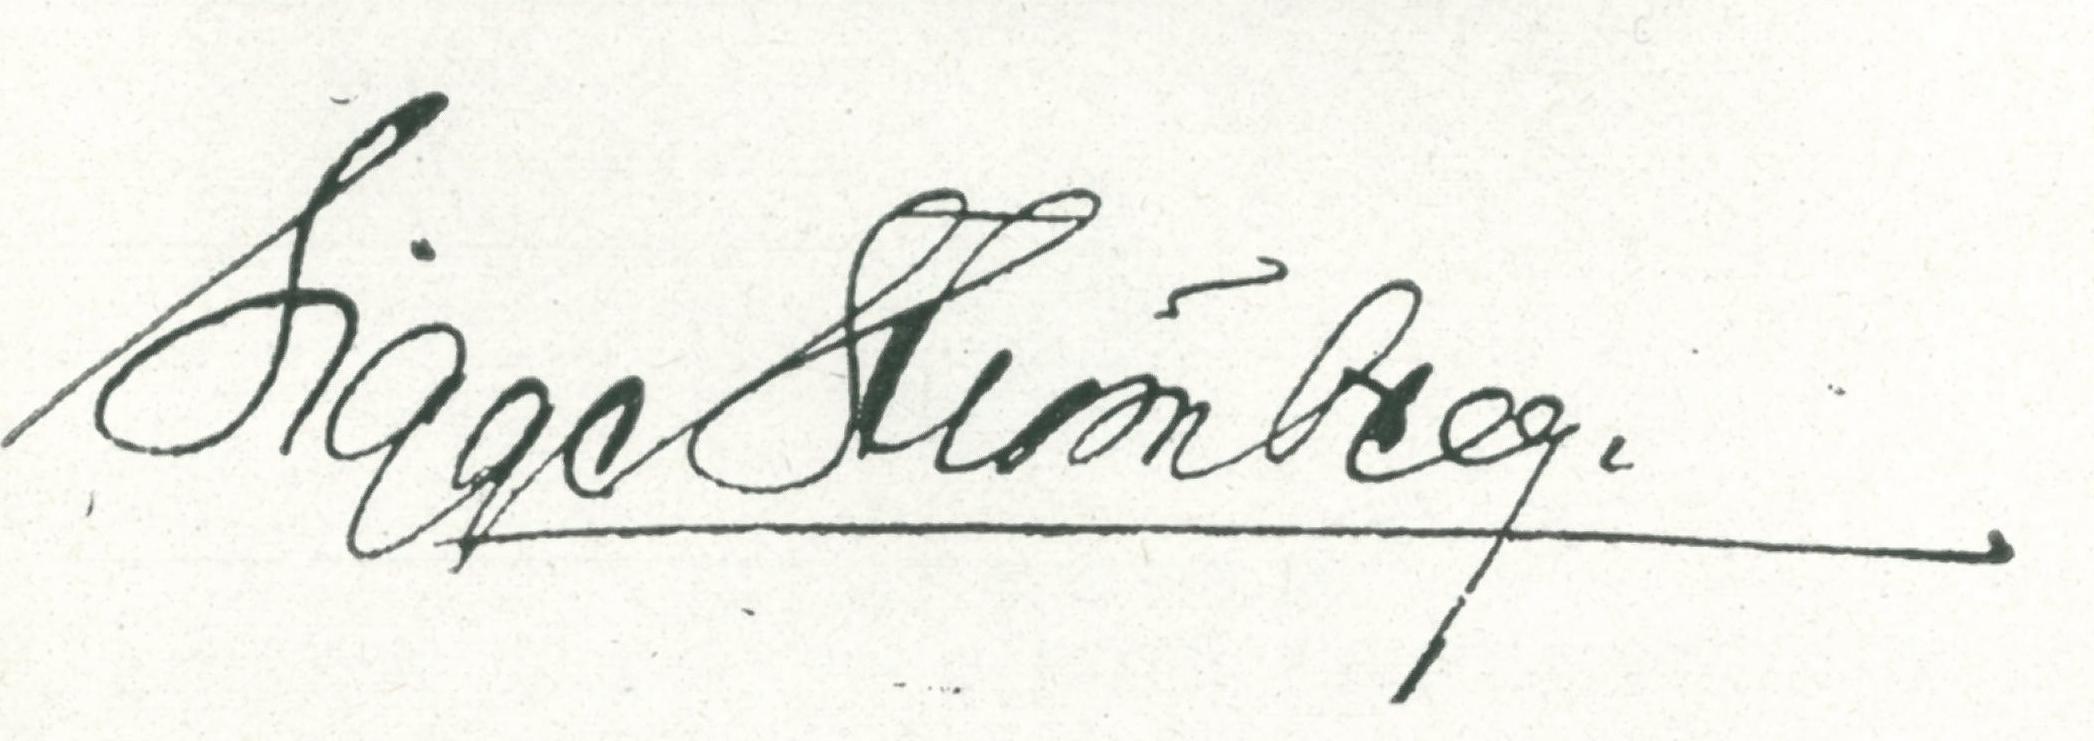 Sigge Strömberg.